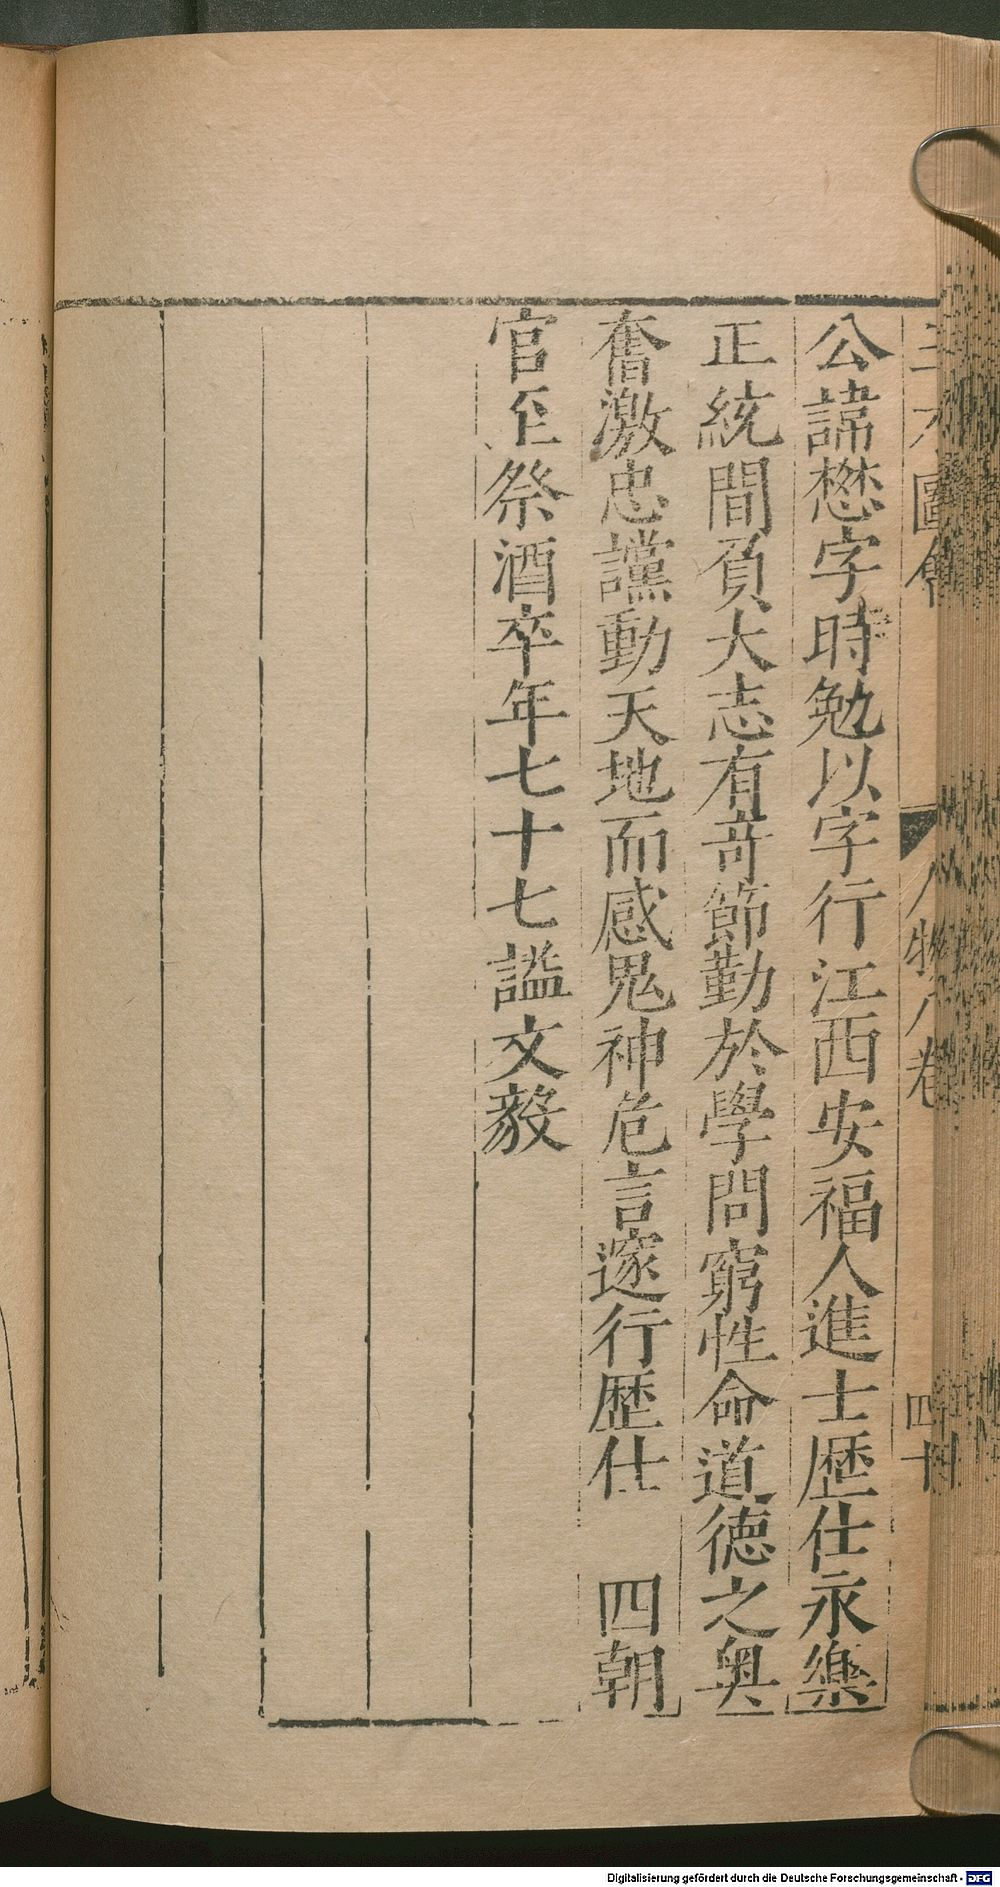 三才圖會 人物八卷 四十
公諱懋字時勉以字行江西安福人進士歷仕永樂
正統間負大志有竒節勤於學問窮性命道德之奧
奮激忠讜動天地而感鬼神危言邃行歷仕 四朝
官至祭酒卒年七十七謚文毅
Digitalisierung gefördert durch die Deutsche Forschungsgemeinschaft - DFG